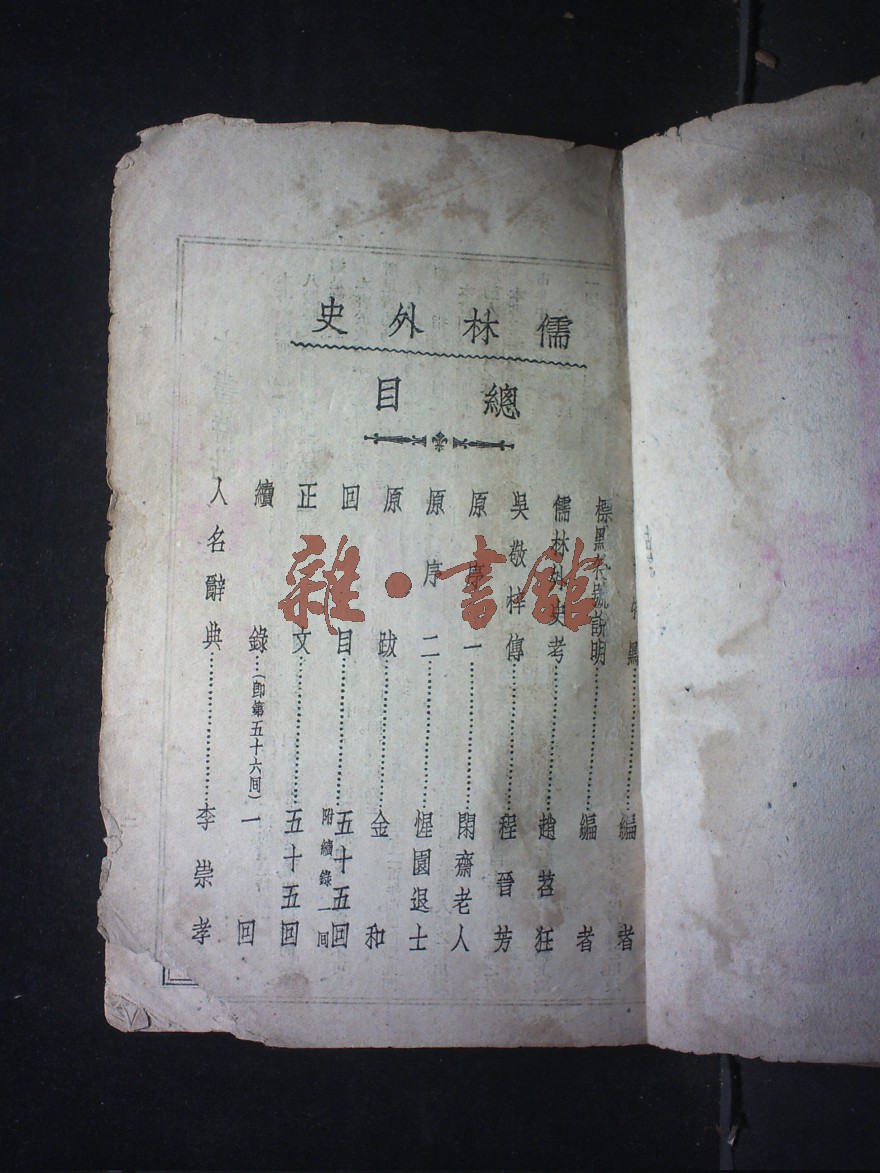 儒林外史
總目
點……編者
標點符號說明……編者
儒林外史考……趙苕狂
吳敬梓傳……程晉芳
原序一……閑齋老人
原序二……惺園退士
原跋……金和
回目……五十五回附續錄一回
正文……五十五回
續錄…(卽第五十六回)一回
人名辭典……李崇孝
雜·書館